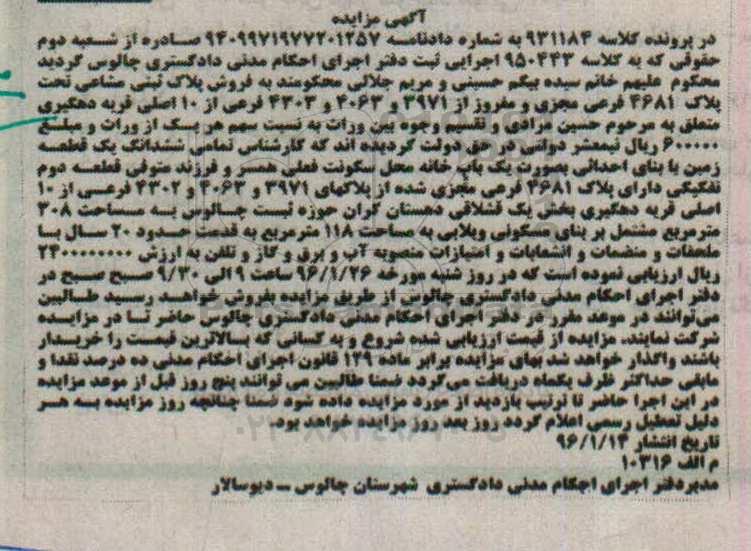 آگهی مزایده
در پرونده کلاسه ۹۳۱۱۸۴ به شماره دادنامه ۹۴۰۹۹۷۱۹۷۷۲۰۱۲۵۷ صادره از شعبه دوم
حقوقی که به کلاسه ۹۵۰۴۴۳ اجرایی ثبت دفتر اجرای احکام مدنی دادگستری چالوس گردید
محکوم علیهم خانم سیده بیگم حسینی و مریم جلالی محکومند به فروش پلاک ثبتی مشاعی تحت
پلاک ۴۶۸۱ فرعی مجزی و مفروز از ۳۹۷۱ و ۴۰۶۳ و ۴۳۰۳ فرعی از ۱۰ اصلی قریه دهگیری
متعلق به مرحوم حسین مرادی و تقسیم وجوه بین وراث به نسبت سهم هر یک از وراث و مبلغ
۶۰۰۰۰۰ ریال نیمعشر دولتی در حق دولت گردیده اند که کارشناس تمامی ششدانگ یک قطعه
زمین با بنای احداثی بصورت یک باب خانه محل سکونت فعلی همسر و فرزند متوفی قطعه دوم
تفکیکی دارای پلاک ۴۶۸۱ فرعی مجزی شده از پلاکهای ۳۹۷۱ و ۴۰۶۳ و ۴۳۰۲ فرعی از ۱۰
اصلی قریه دهگیری بخش یک قشلاقی دهستان کران حوزه ثبت چالوس به مساحت ۳۰۸
مترمربع مشتمل بر بنای مسکونی ویلایی به مساحت ۱۱۸ مترمربع به قدمت حدود ۲۰ سال با
ملحقات و منضمات و انشعابات و امتیازات منصوبه آب و برق و گاز و تلفن به ارزش ۲۴۰۰۰۰۰۰۰۰
ریال ارزیابی نموده است که در روز شنبه مورخه ۹۶/۱/۲۶ ساعت ۹ الی ۹/۳۰ صبح صبح در
دفتر اجرای احکام مدنی دادگستری چالوس از طریق مزایده بفروش خواهد رسید طالبین
می‌توانند در موعد مقرر در دفتر اجرای احکام مدنی دادگستری چالوس حاضر تا در مزایده
شرکت نمایند. مزایده از قیمت ارزیابی شده شروع و به کسانی که بالاترین قیمت را خریدار
باشند واگذار خواهد شد بهای مزایده برابر ماده ۱۲۹ قانون اجرای احکام مدنی ده درصد نقدا و
مابقی حداکثر ظرف یکماه دریافت می‌گردد ضمنا طالبین می توانند پنج روز قبل از موعد مزایده
در این اجرا حاضر تا ترتیب بازدید از مورد مزایده داده شود ضمنا چنانچه روز مزایده به هر
دلیل تعطیل رسمی اعلام گردد روز بعد روز مزایده خواهد بود.
تاریخ انتشار ۹۶/۱/۱۴
م الف ۱۰۳۱۶
مدیردفتر اجرای احکام مدنی دادگستری شهرستان چالوس – دیوسالار